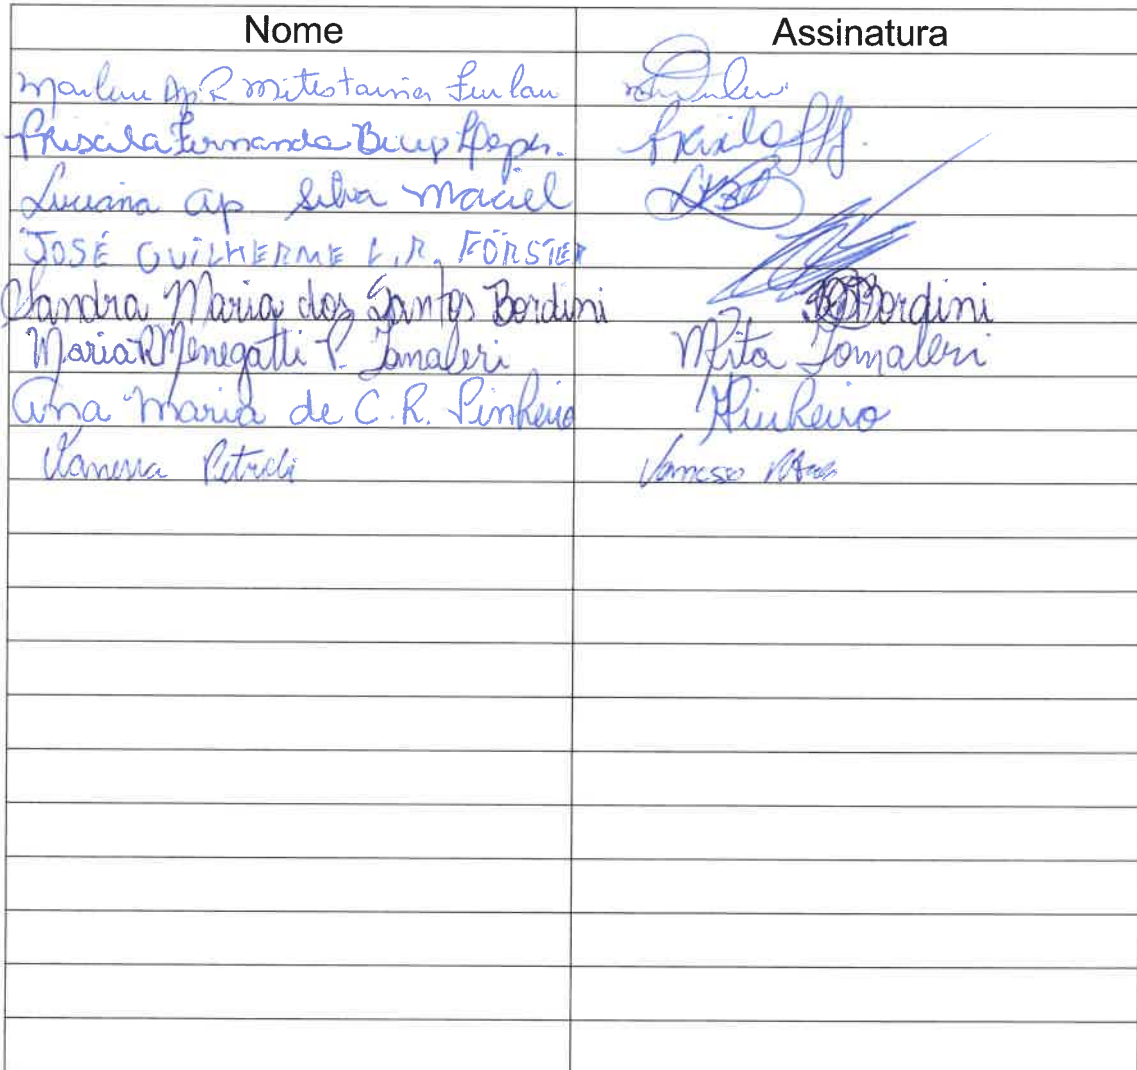 Nome Assinatura
Marlene Ap. R Furlan
Priscila Fernanda Lopes.
Luciana Ap. Silva Maciel
JOSÉ GUILHERME L.R. FÖRSTER
Sandra Maria dos Santos Bordini Bordini
Maria R Menegatti P. Tomaleri MRita Tomaleri
Ana Maria de C. R. Pinheiro Pinheiro
Vanessa Petroli Vanessa